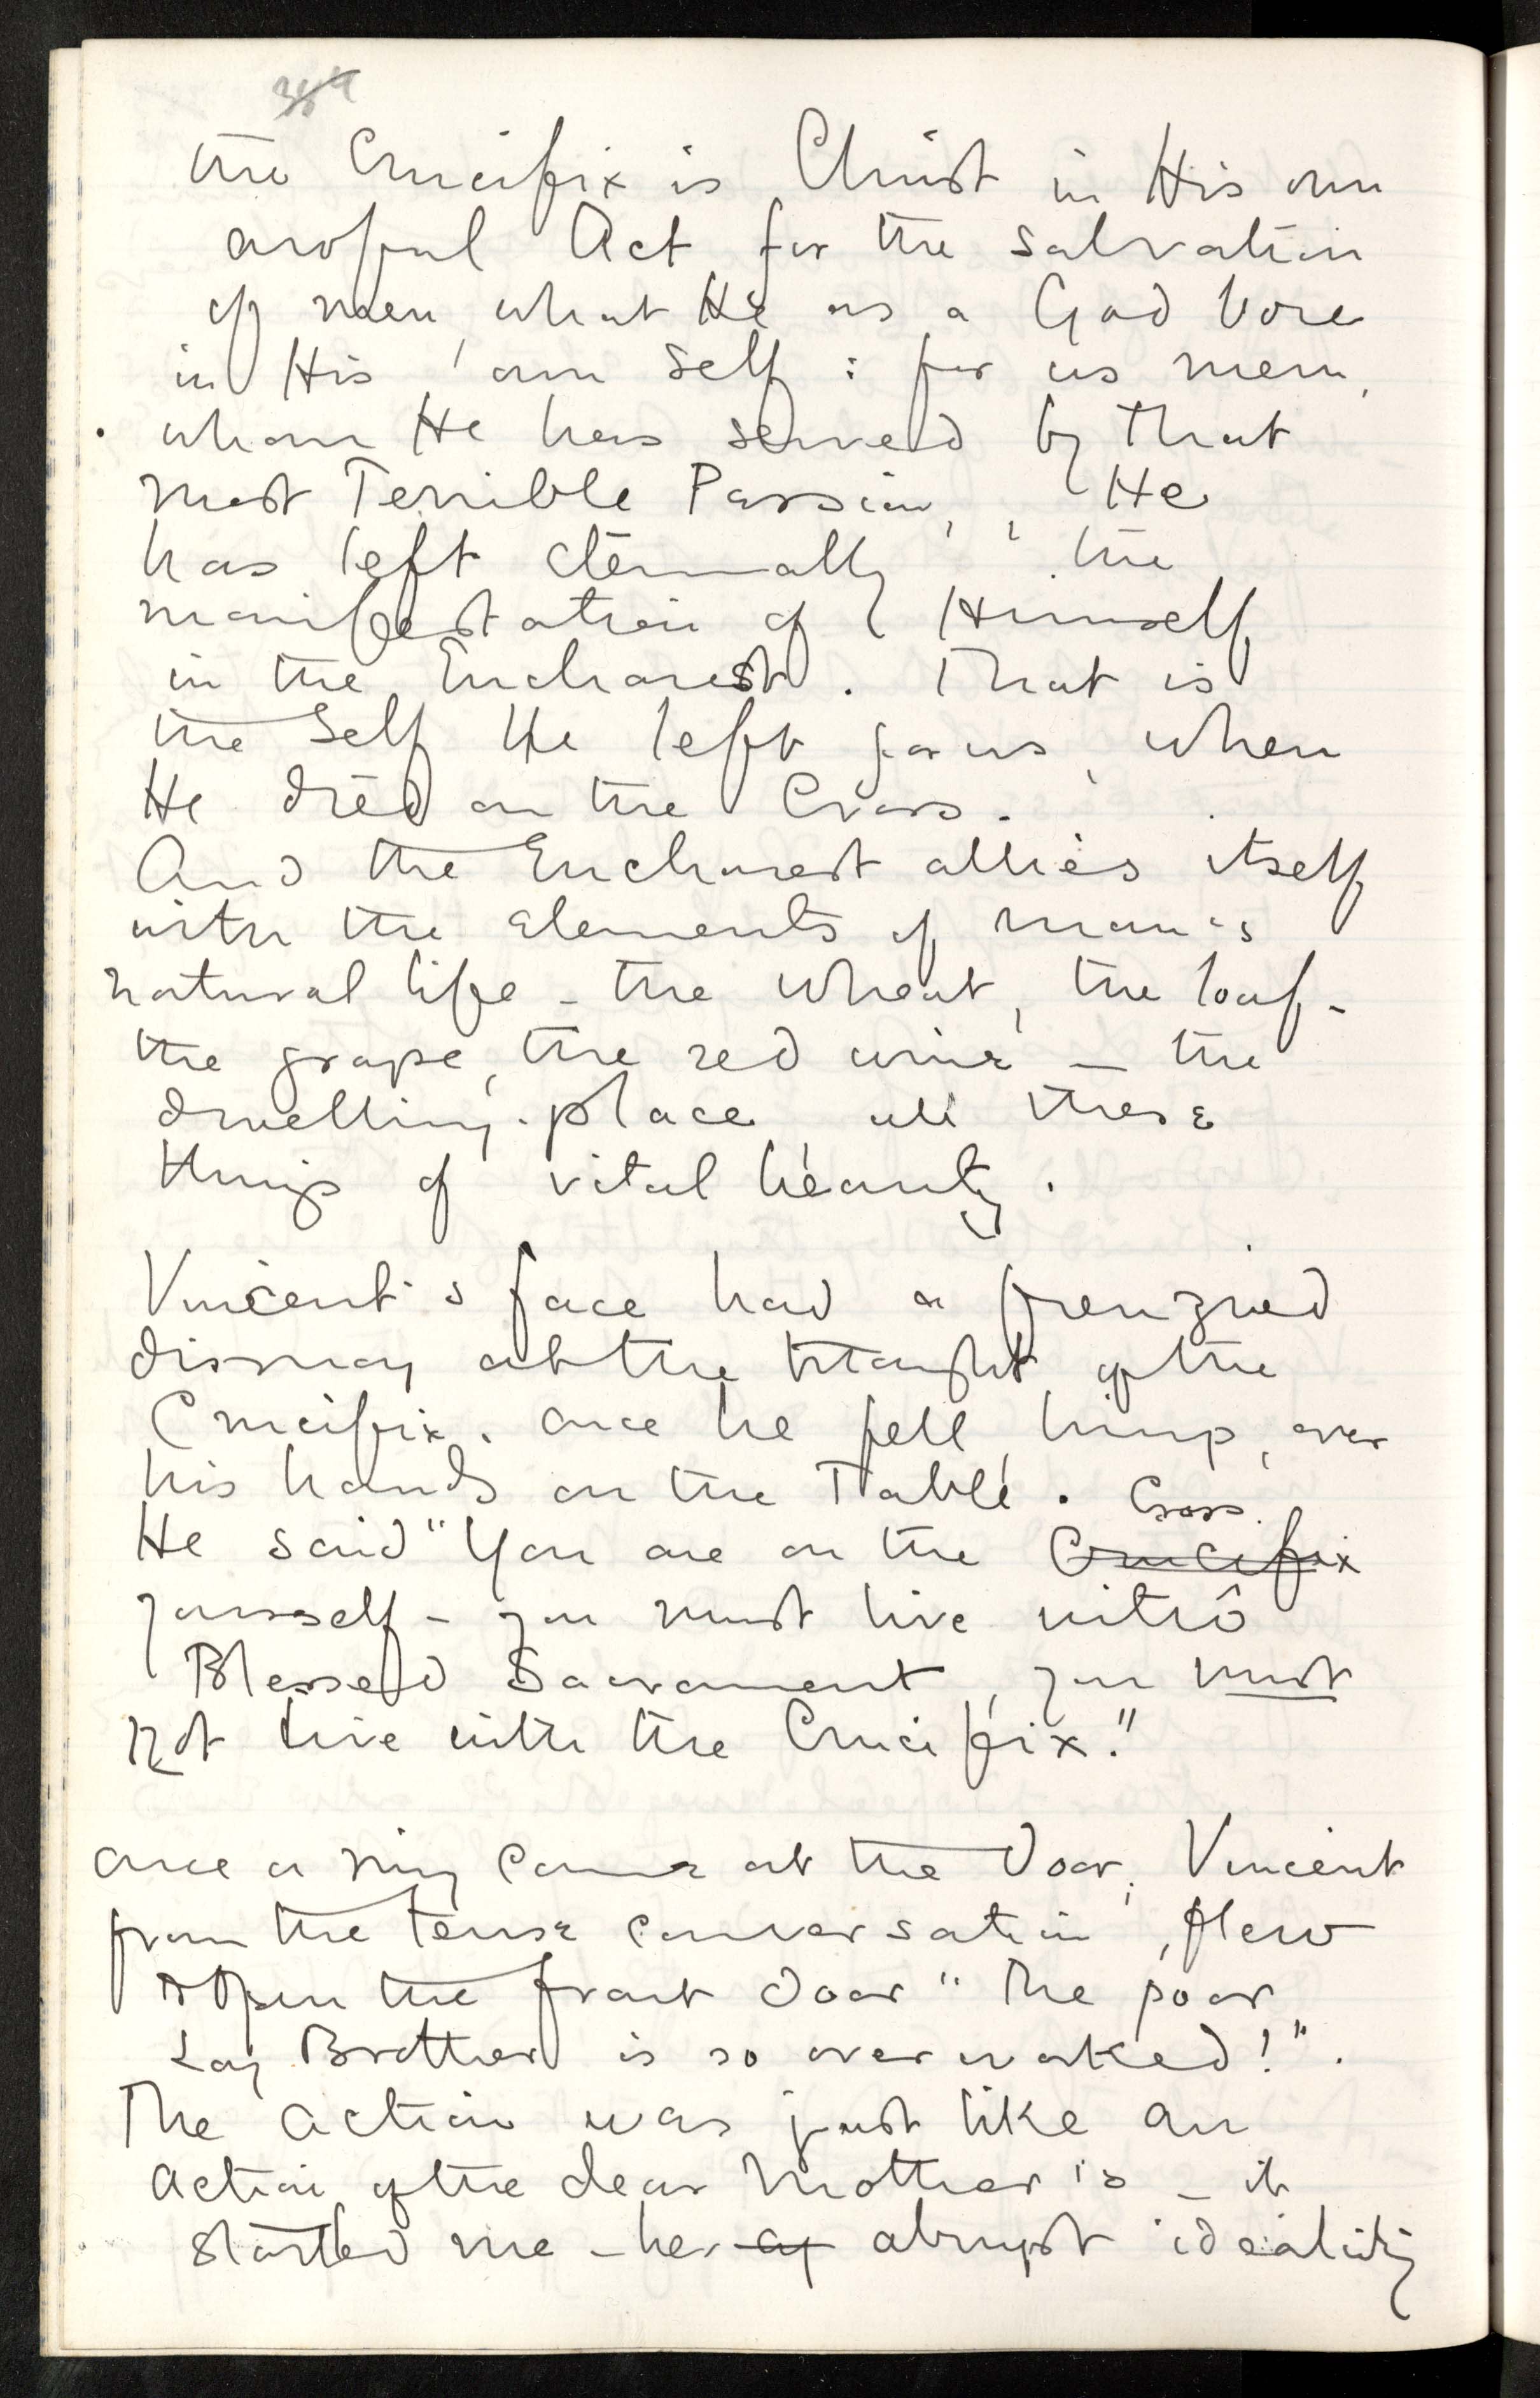 the Crucifix is Christ in His own
awful Act for the salvation
of men, what He as a God bore
in His own Self: for us men,
whom He has served by that
most Terrible Passion, He
has left eternally the
manifestation of Himself
in the Eucharest. That is
the Self He left for us, when
He died on the Cross.
And the Eucharest allies itself
with the elements of man's
natural life - the wheat, the loaf -
the grape, the red wine - the
dwelling-place all these
things of vital beauty.
Vincent's face had a frenzied
dismay at the thought of the
Crucifix. Once he fell, limp, over
his hands on the Table.
He said "You are on the Crucifix Cross
yourself - you must live with
Blessed Sacrament, you must
not live with the Crucifix."
Once a ring came at the door; Vincent
from the tense conversation, flew
open the front door "The poor
Lay Brother is so overworked!".
The action was just like an
action of the dear Mother's - it
startled me - her ap abrupt ideality